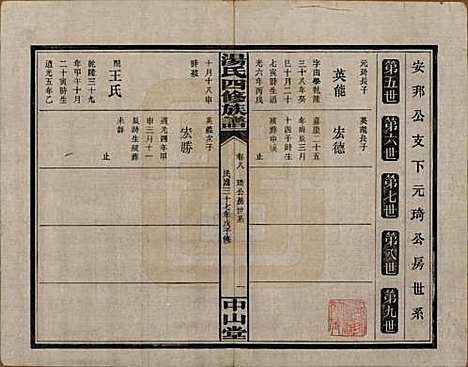 安邦公支下元琦公房世系
第五世
第六世
第七世
第八世
第九世
元琦長子
英能
字由學乾隆
三十八年癸
巳十月二十
七寅時生道
光六年丙戌
英能長子
宏德
嘉慶二十五
年庚辰三月
十四子時生
續葬中南
止
湯氏四修族譜
卷八
琦公房世系
一
民國三十七年戊子修
中山堂
十月十八申
時歿
配王氏
乾隆三十九
年甲午十月
二十寅時生
道光五年乙
英能次子
宏勝
道光四年甲
申三月十一
辰時生歿葬
未詳
止